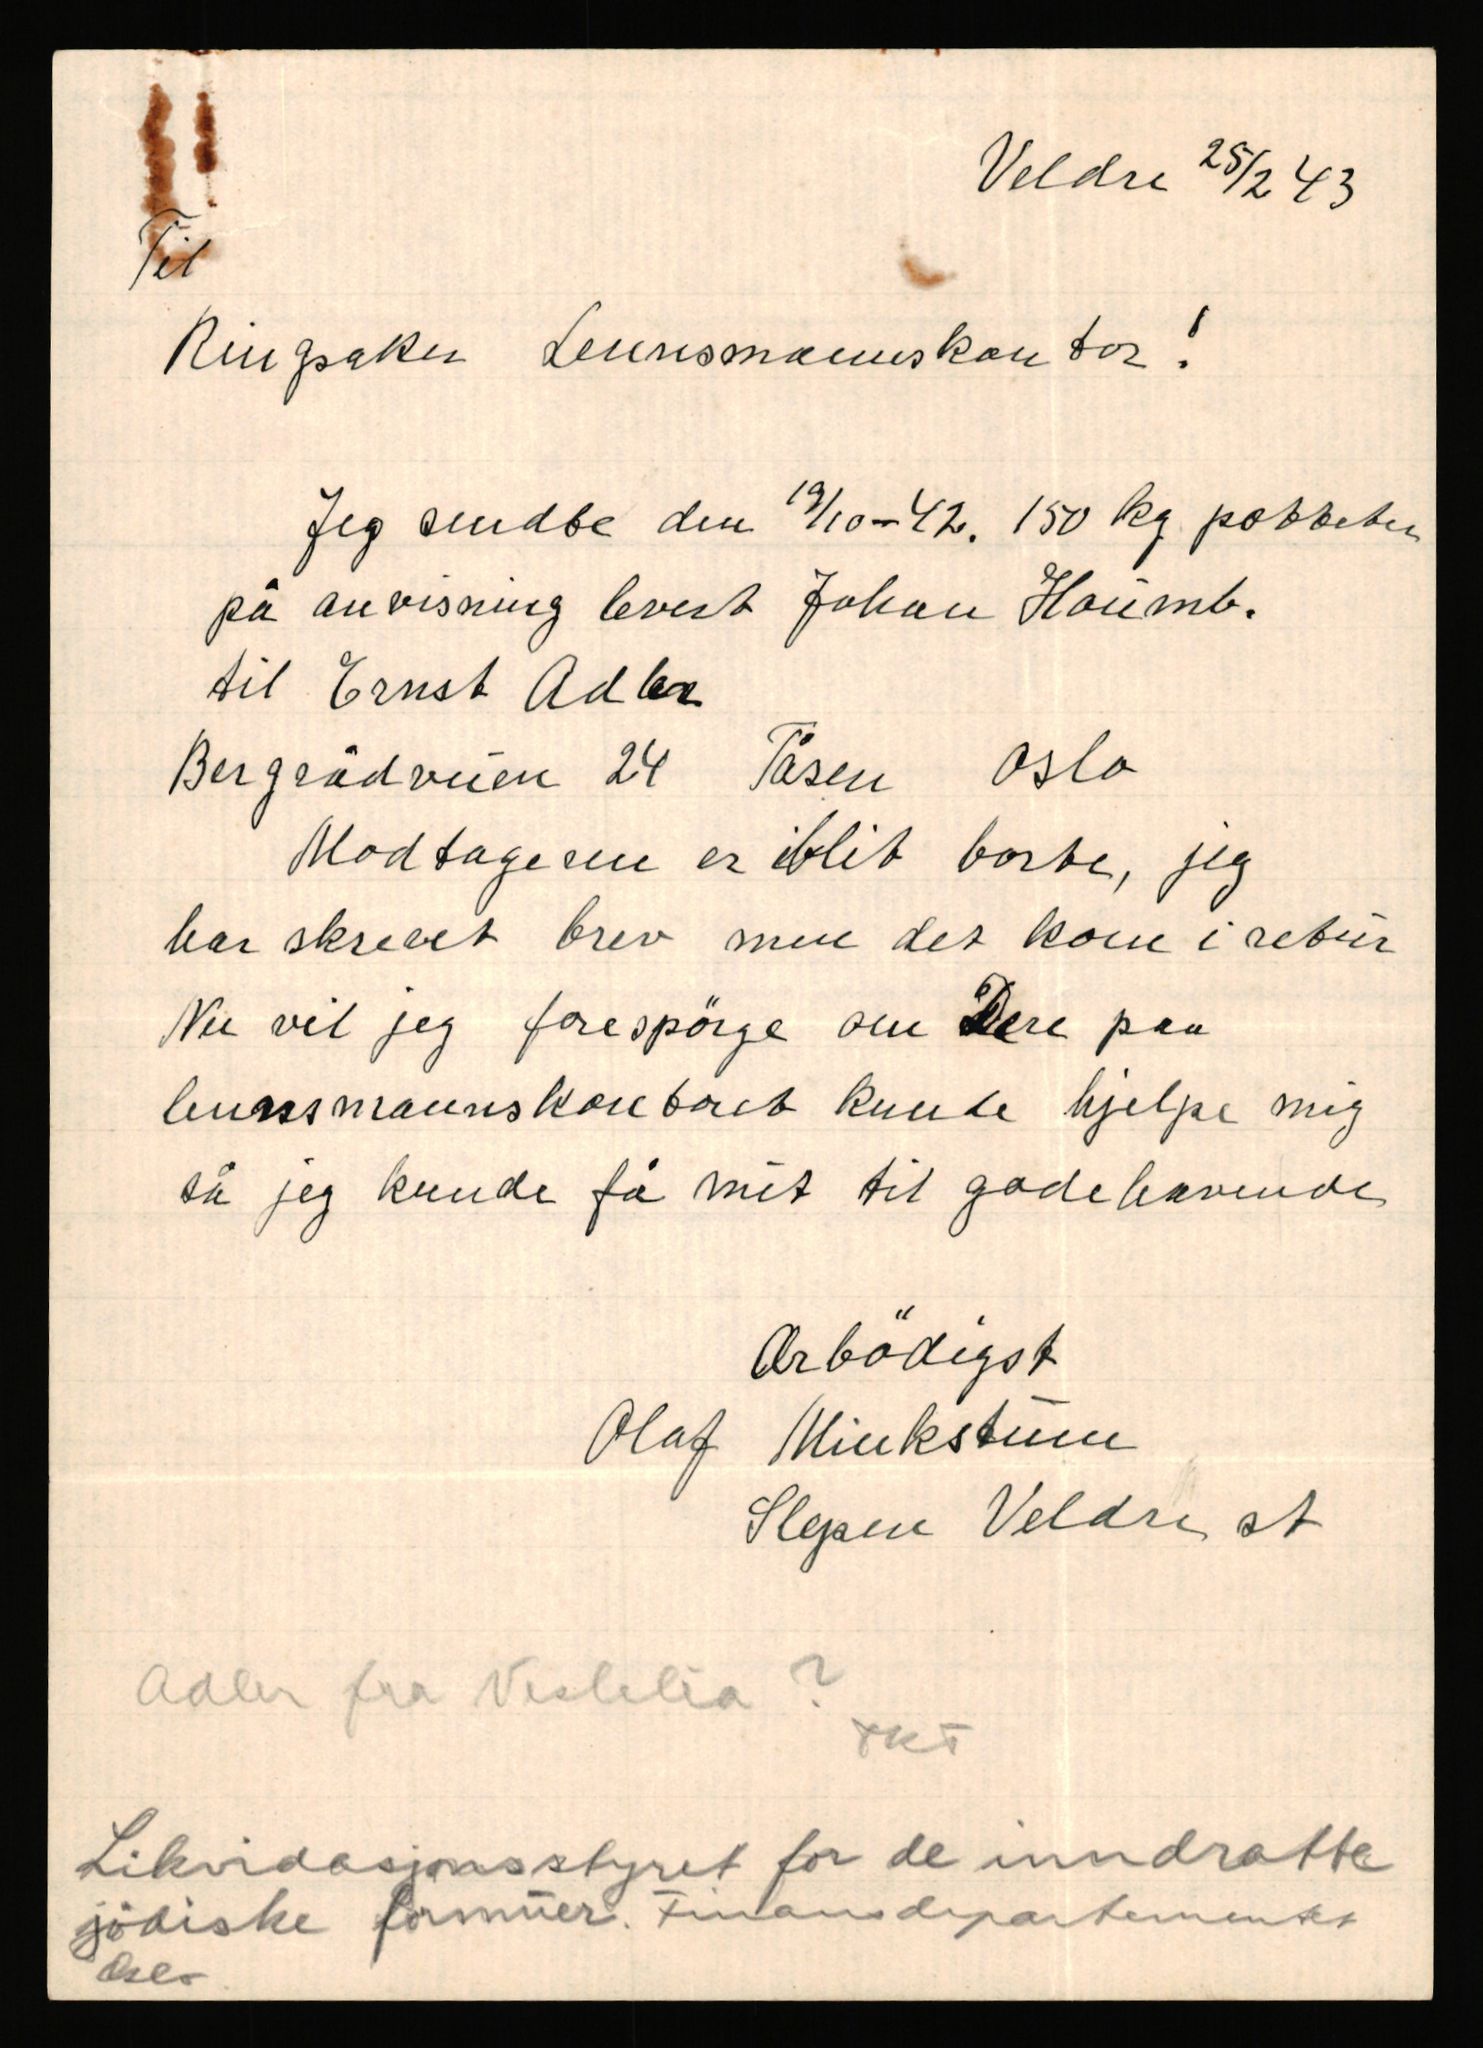 Veldre 25/2 43
Til
Ringsaker Lennsmannskontor!
Jeg sendte den 19/10-42. 150 kg poteter
på anvisning levert Johan Houmb.
til Ernst Adler
Bergrådveien 24 Tåsen Oslo
Modtageren er blit borte, jeg
har skrevet brev men det kom i retur
Nu vil jeg forespörge om Dere paa
lennsmannskontoret kunde hjelpe mig
så jeg kunde få mit til godehavende
Ærbödigst
Olaf Minkstuen
Slepsen Veldre st
Adler fra Veslelia?
Likvidasjonsstyret for de inndratte
jödiske formuer. Finansdepartementet
Oslo